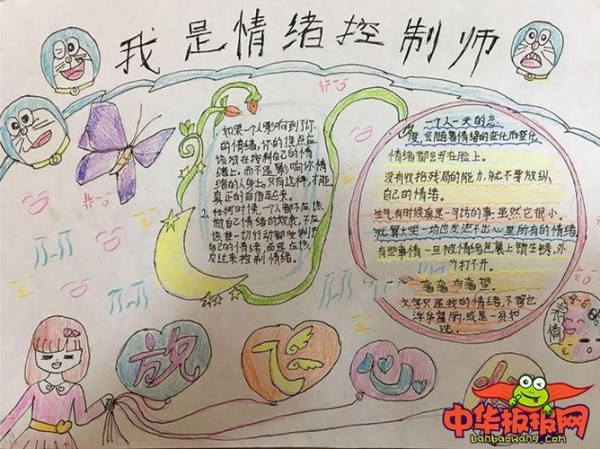 我是情绪控制师
1. 如果一个人影响到了你
的情绪,你的焦点应
该放在控制自己的情
绪上,而不是影响你情
绪的人身上,只有这样,才能
真正的自信起来。
2. 任何时候,一个人都不应该
做自己情绪的奴隶,不应
该使一切行动都受制于
自己的情绪,而是应该
反过来控制情绪。
一个人一天的态
度,会随着情绪的变化而变化
情绪都会写在脸上。
没有收拾残局的能力,就不要放纵
自己的情绪。
生气有时候真是一可访的事虽然它很小。
就算太宏一场也发泄不出心里所有的情绪,
有些事情一旦被情绪包裹上
打不开。
文字只是我的情绪,不管它
放飞心
表情
中华板报网
banbaowang.com